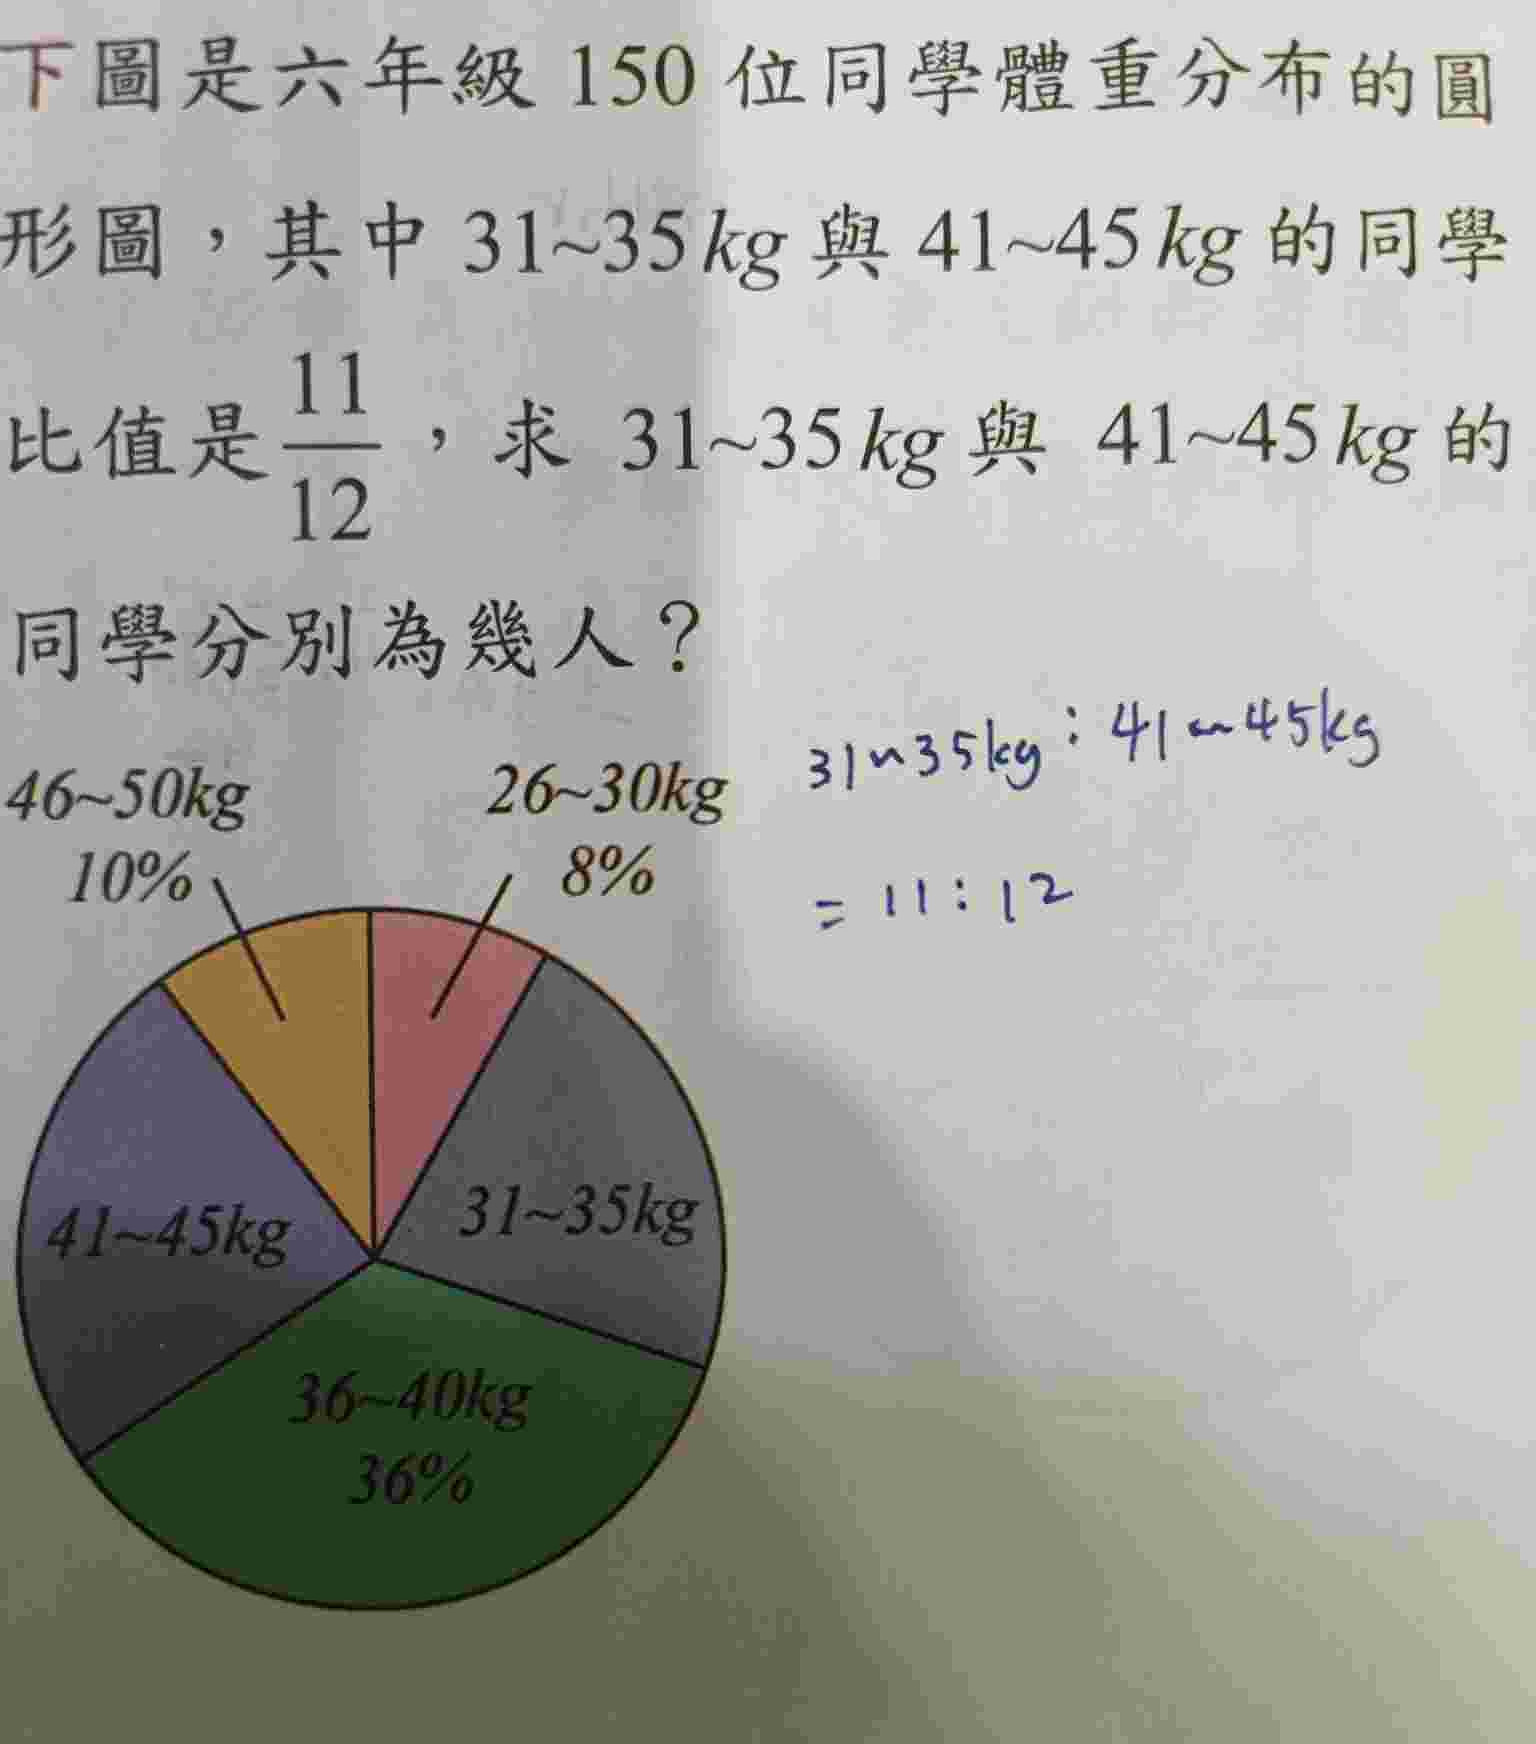 下圖是六年級 150 位同學體重分布的圓
形圖，其中 31~35 kg 與 41~45 kg 的同學
比值是 11/12，求 31~35 kg 與 41~45 kg 的
同學分別為幾人？
31~35kg : 41~45kg
= 11 : 12
46~50kg
10%
26~30kg
8%
41~45kg
31~35kg
36~40kg
36%